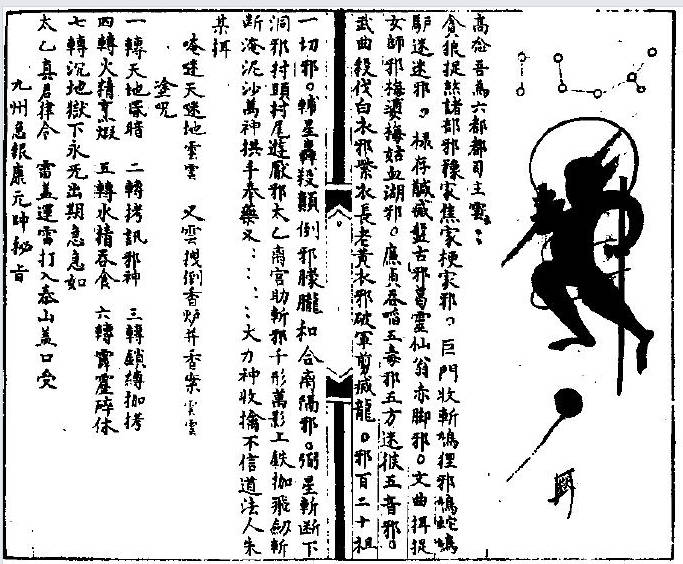 高忿吾為六都都司主霛
貪狼捉煞諸部邪豫家焦家梗家邪。巨門收斬鳩狸邪鳩蛇鳩
馿迷迷邪。椂存馘㓕盤古邪葛靈仙翁赤脚邪。文曲揖捉
女師邪梅婆梅姑血湖邪。廉貞吞啗五毒邪五方迷猴五音邪。
武曲殺伐白衣邪紫衣長老黃衣邪破軍剪㓕龍。邪百二十祖
一切邪。輔星轟殺顛倒邪朦朧和合南隔邪。弼星斬断下
洞邪村頭村尾遊厭邪太乙南宮助斬邪千形萬影工鉄枷飛劍斬
断淹泥沙萬神拱手奉藥叉大力神收擒不信道法人朱
某拝
唵迷天迷地雲雲 又雲拽倒香炉并香案雲雲
塗咒
一轉天地昏暗 二轉拷訊邪神 三轉鎖縛枷拷
四轉火精烹煅 五轉水精吞食 六轉霹靂碎体
七轉沉地獄下永死出期急急如
太乙真君律令 雷盖運雷打入泰山盖口受
九州急報康元帥秘旨